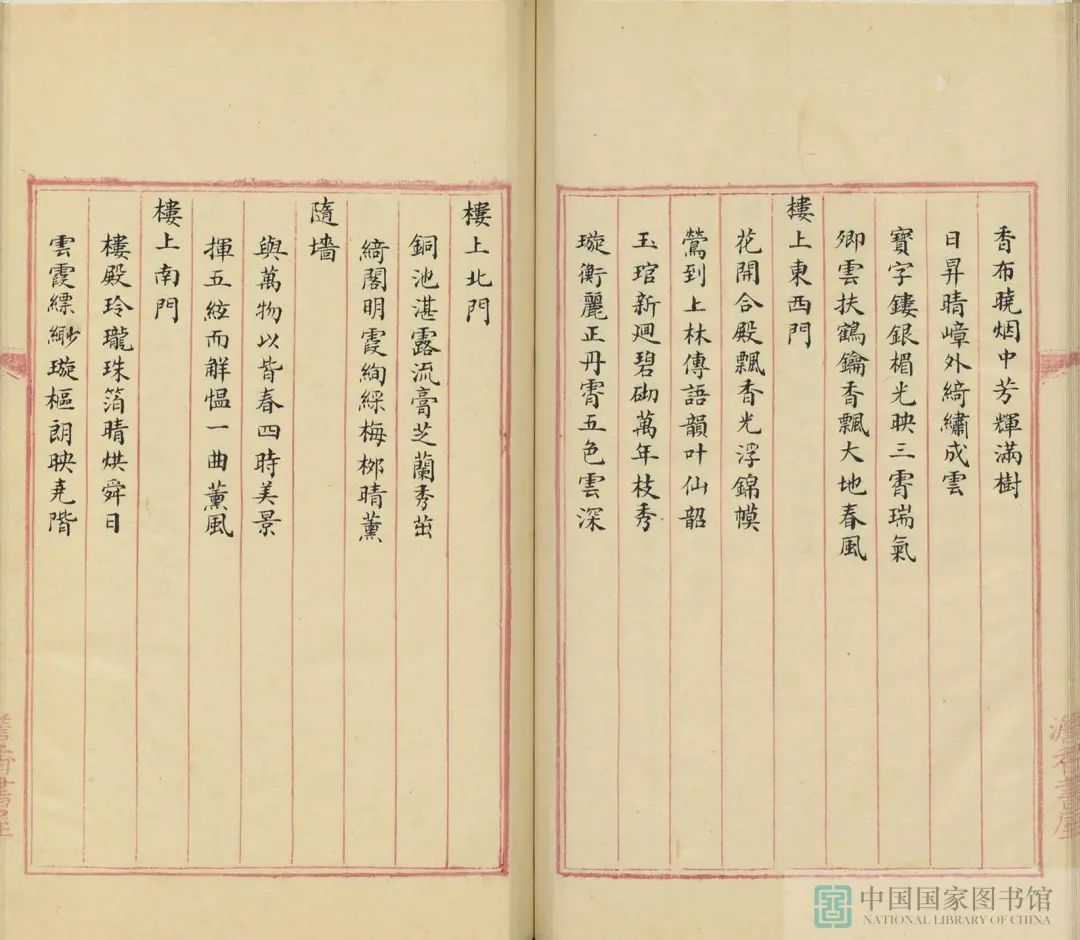 香布曉烟中芳輝滿樹
日昇晴嶂外綺繡成雲
寶字鏤銀楣光映三霄瑞氣
卿雲扶鶴鑰香飄大地春風
樓上東西門
花開合殿飄香光浮錦幙
鶯到上林傳語韻叶仙韶
玉琯新廻碧砌萬年枝秀
璇衡麗正丹霄五色雲深
樓上北門
銅池湛露流膏芝蘭秀茁
綺閣明霞絢綵梅栁晴薰
隨墻
與萬物以皆春四時美景
揮五絃而觧愠一曲薰風
樓上南門
樓殿玲瓏珠箔晴烘舜日
雲霞縹緲璇樞朗映堯階
中国国家图书馆
NATIONAL LIBRARY OF CHINA